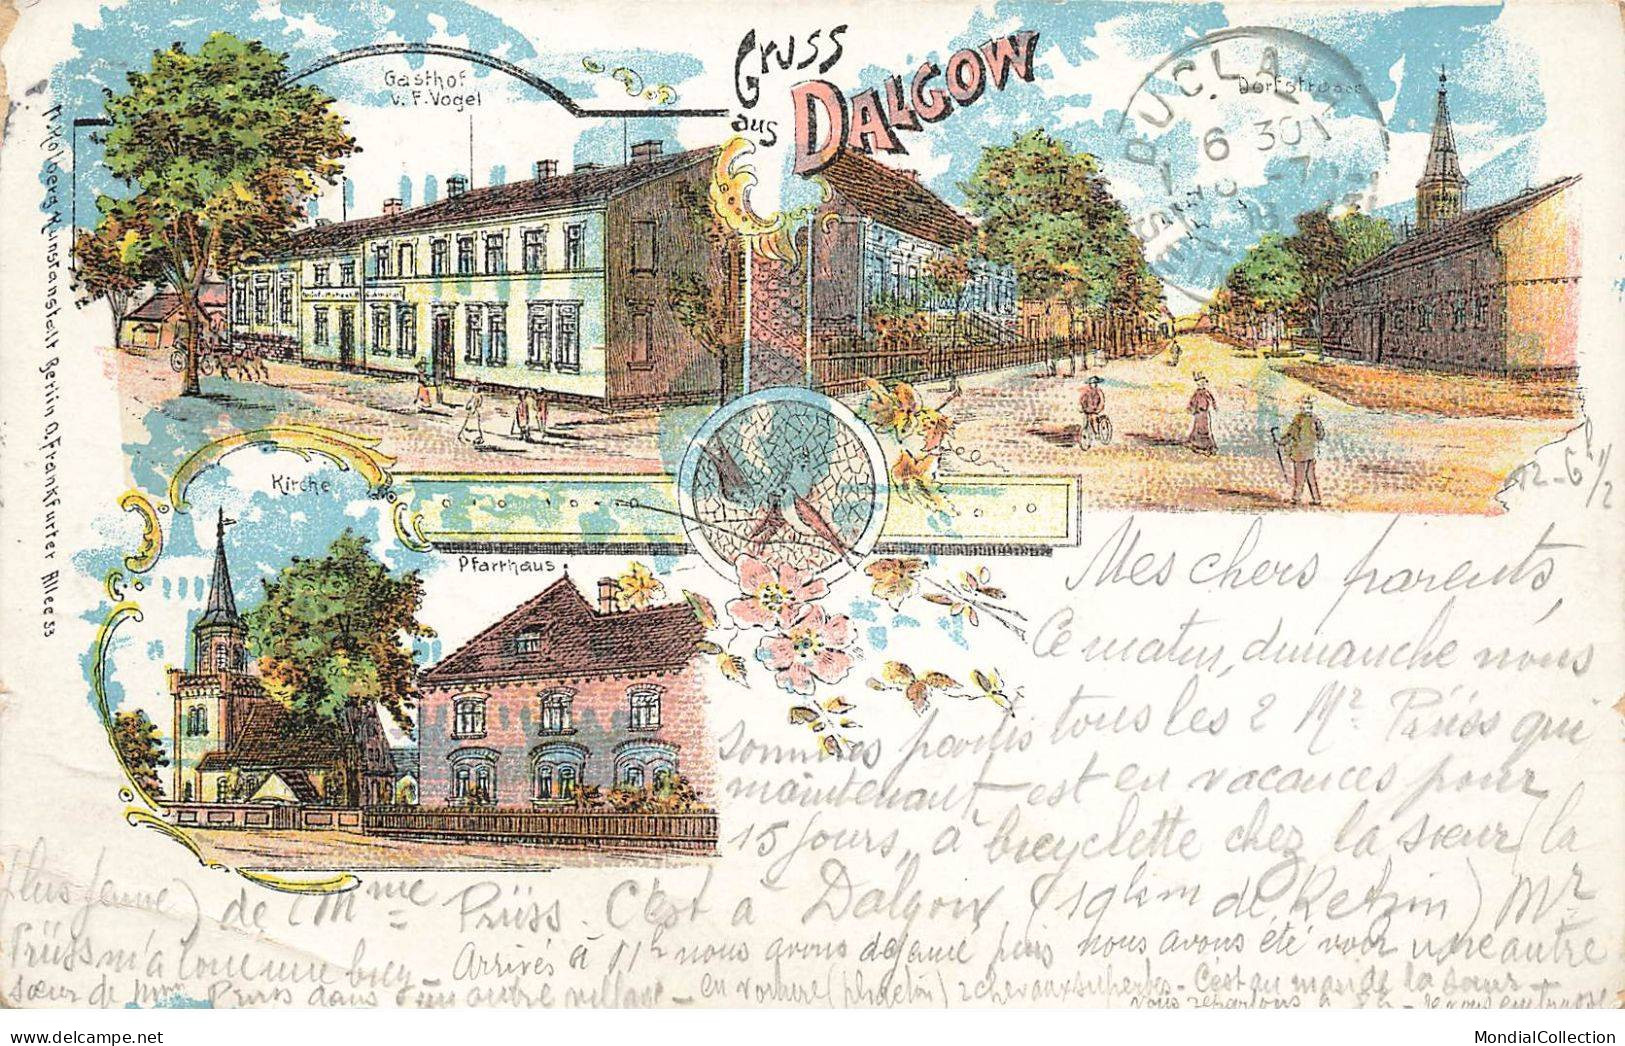 Gruss
aus
DALGOW
Gasthof
v. F. Vogel
Dorfstrasse
DUCLAIR
6 30
Kirche
Pfarrhaus
Kunstanstalt Berlin O, Frankfurter Allee 53
12-6h 1/2
Mes chers parents,
Ce matin, dimanche nous
sommes partis tous les 2 Mr Prüss qui
maintenant est en vacances pour
15 jours, à bicyclette chez la sœur (la
plus jeune) de Mme Prüss. C'est à Dalgow (19 km de Retzin) Mr
Prüss m'a loué une bicy - Arrivés à 11h nous avons dejeuné puis nous avons été voir une autre
sœur de Mme Prüss dans un autre village - en voiture (phaéton) 2 chevaux superbes - C'est au mari de la sœur -
nous repartons à 8h - Je vous embrasse
MondialCollection